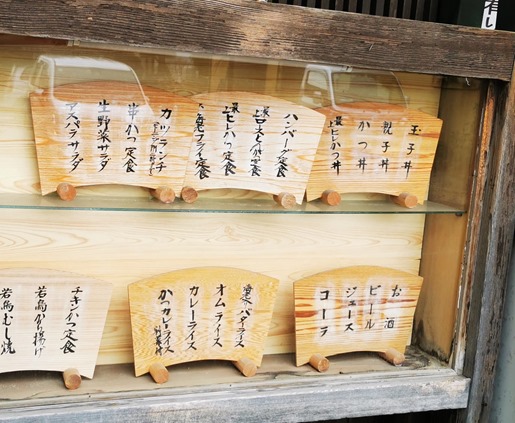 玉子丼
親子丼
かつ丼
最上ヒレかつ丼
ハンバーグ定食
最上ヒレかつ定食
大海老フライ定食
カツランチ
串かつ定食
生野菜サラダ
アスパラサラダ
お酒
ビール
ジュース
コーラ
バターライス
オムライス
カレーライス
かつカレーライス
チキンかつ定食
若鶏から揚げ
若鶏むし焼